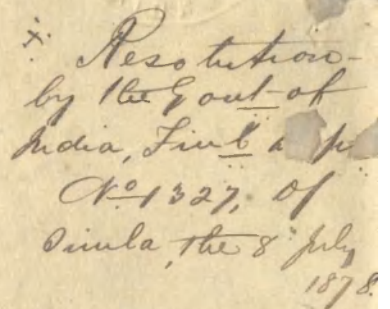 Resolution-
by the Govt of
India, Finl
No 1327, of
Simla, the 8 July
1878.